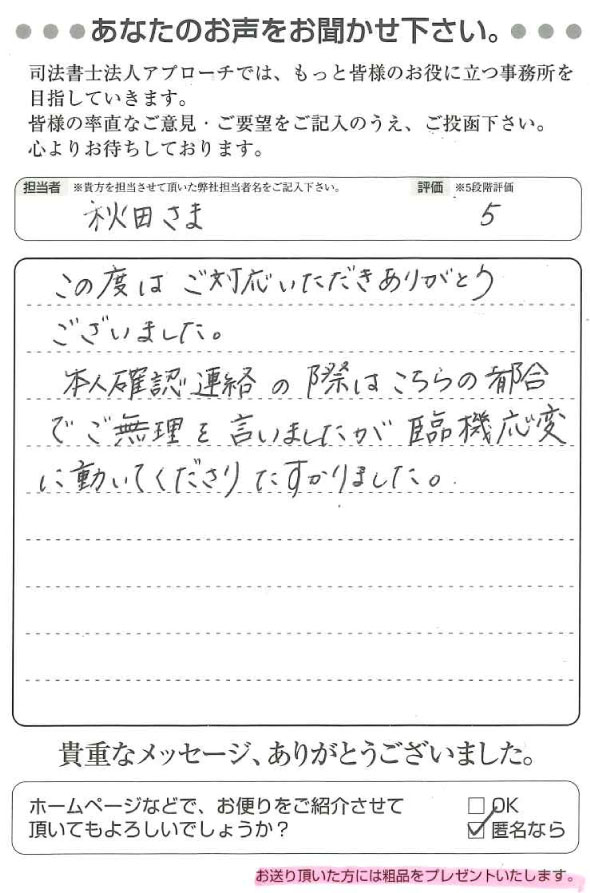 ●●●あなたのお声をお聞かせ下さい。●●●
司法書士法人アプローチでは、もっと皆様のお役に立つ事務所を
目指していきます。
皆様の率直なご意見・ご要望をご記入のうえ、ご投函下さい。
心よりお待ちしております。
担当者 ※貴方を担当させて頂いた弊社担当者名をご記入下さい。 評価 ※5段階評価
秋田さま 5
この度は ご対応いただきありがとう
ございました。
本人確認連絡の際はこちらの都合
でご無理を言いましたが臨機応変
に動いてくださりたすかりました。
貴重なメッセージ、ありがとうございました。
ホームページなどで、お便りをご紹介させて □OK
頂いてもよろしいでしょうか? ☑匿名なら
お送り頂いた方には粗品をプレゼントいたします。